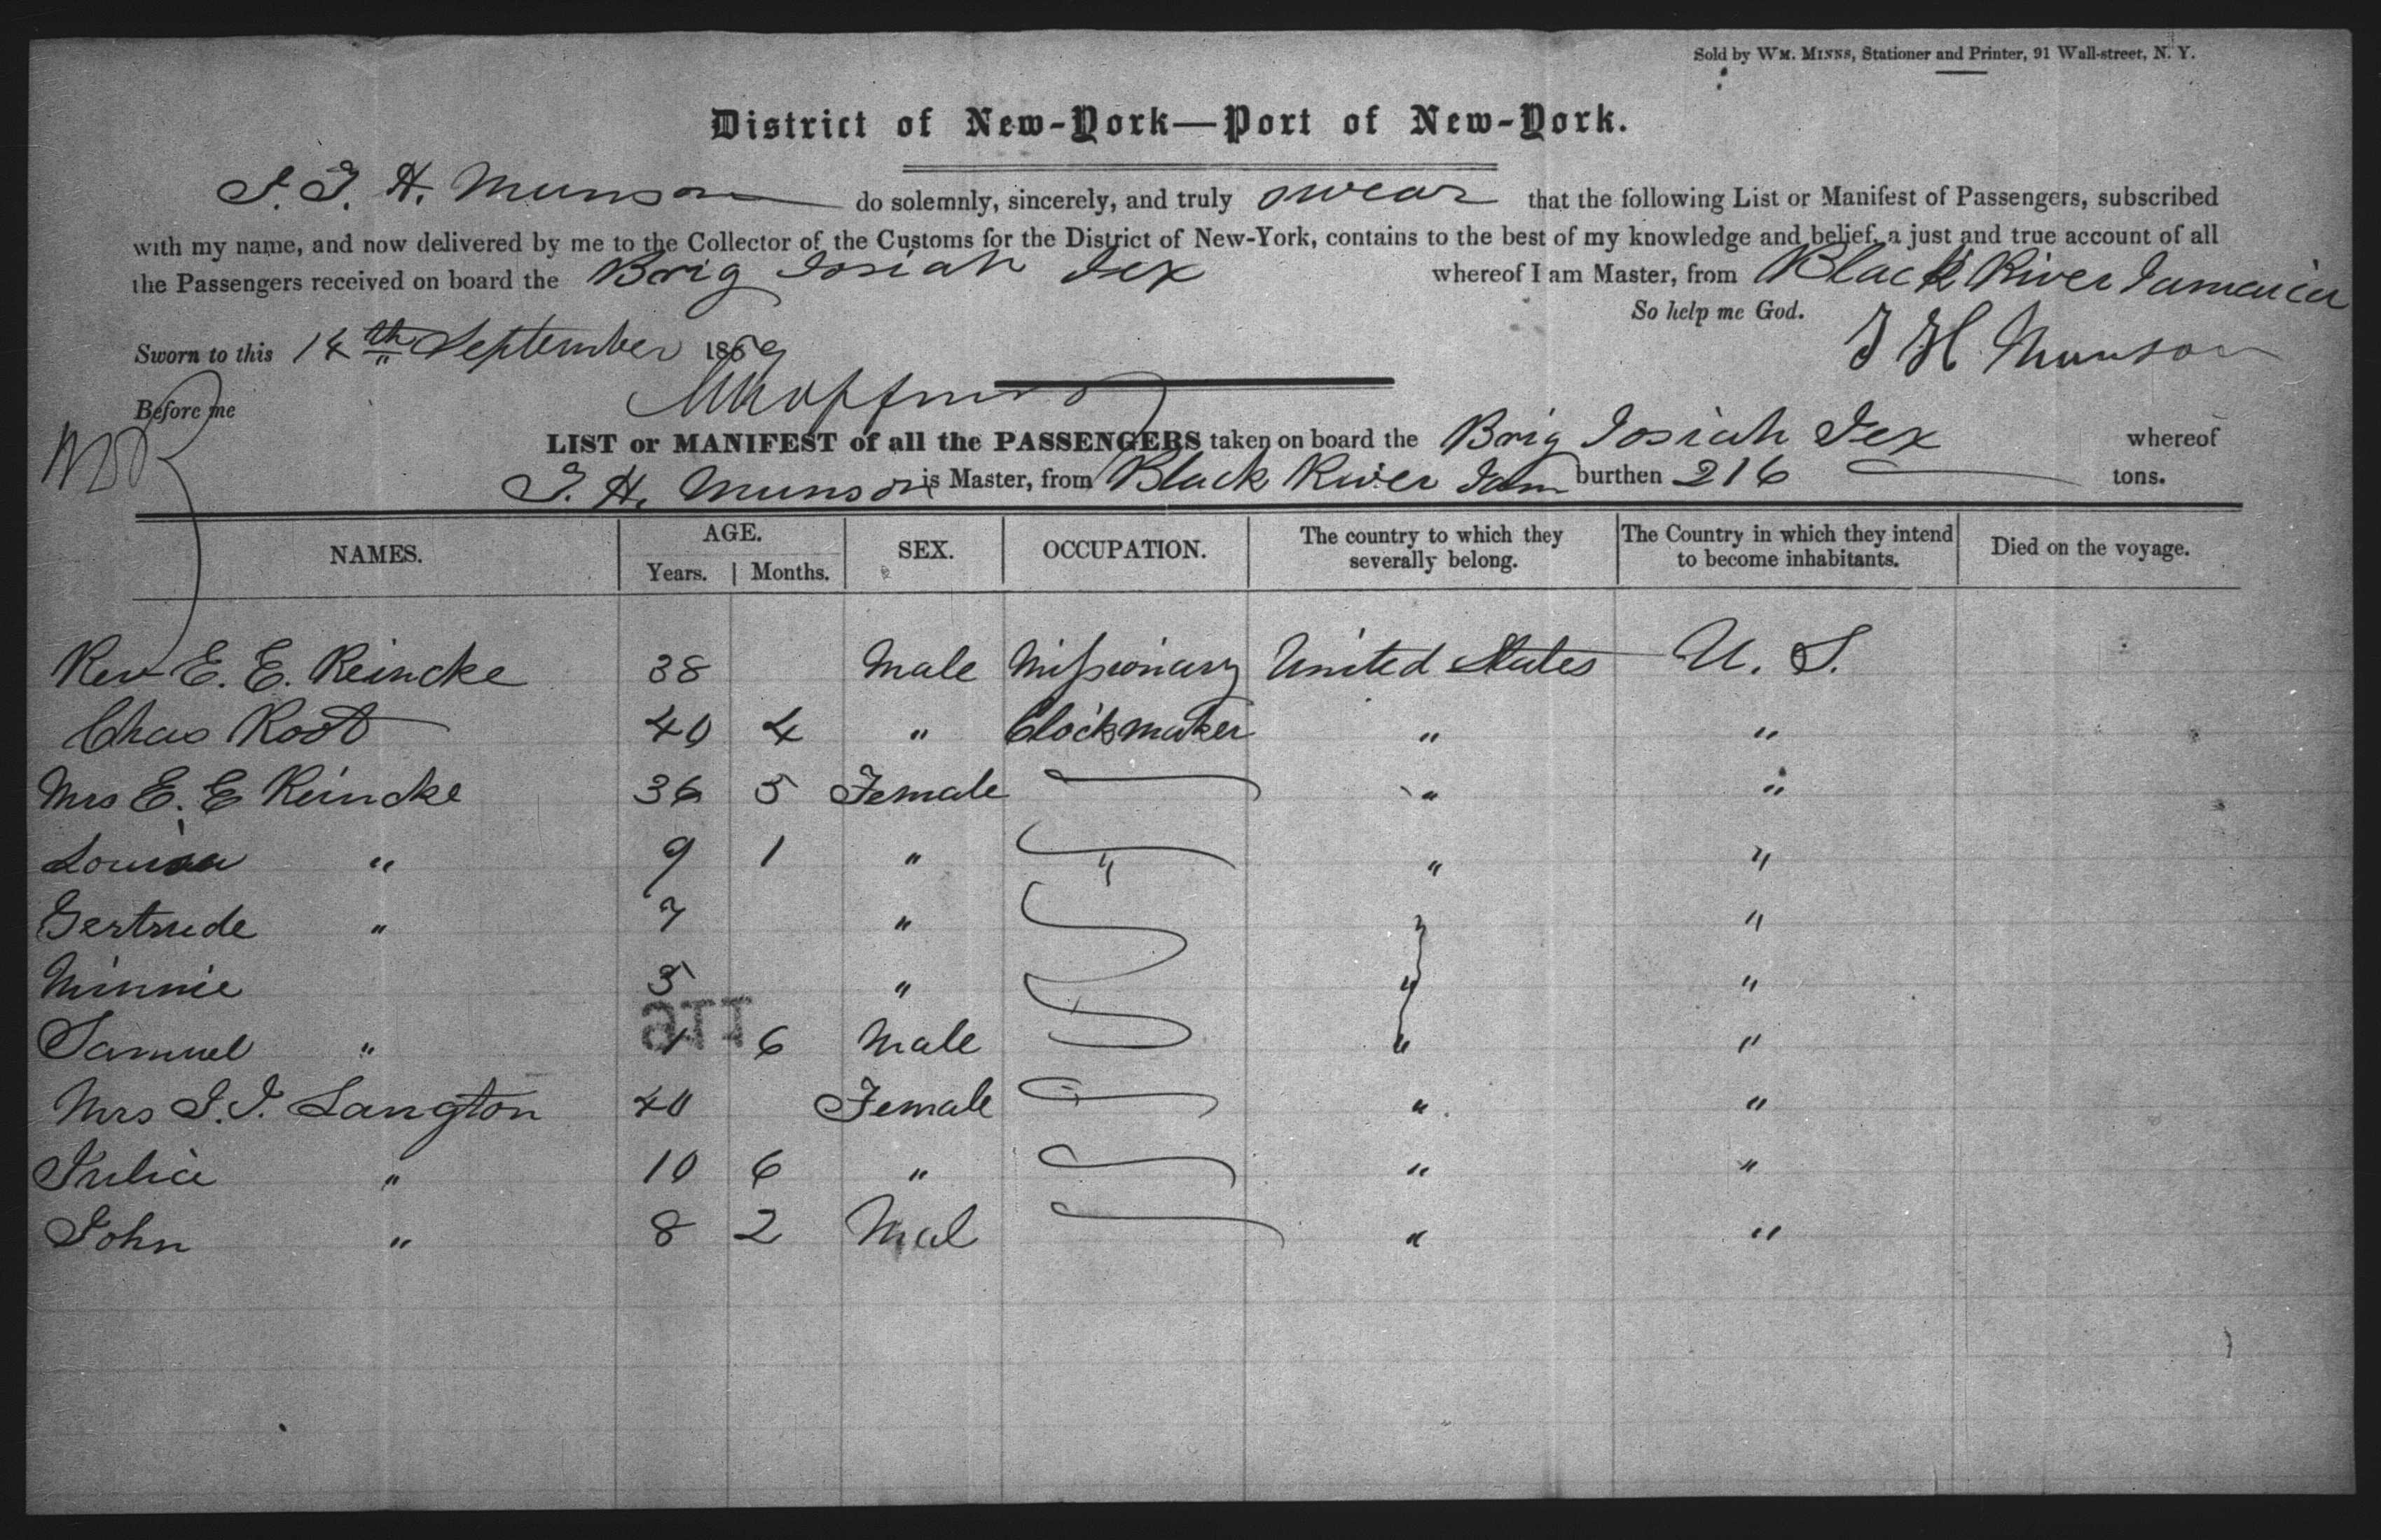 Sold by WM. MINNS, Stationer and Printer, 91 Wall-street, N. Y.
District of New-York—Port of New-York.
I. J. H. Munson do solemnly, sincerely, and truly swear that the following List or Manifest of Passengers, subscribed
with my name, and now delivered by me to the Collector of the Customs for the District of New-York, contains to the best of my knowledge and belief, a just and true account of all
the Passengers received on board the Brig Josiah Jex whereof I am Master, from Black River Jamaica
So help me God.
Sworn to this 14th September 1869 J H Munson
Before me
LIST or MANIFEST of all the PASSENGERS taken on board the Brig Josiah Jex whereof
J. H. Munson is Master, from Black River Jam burthen 216 tons.
NAMES. AGE. Years. Months. SEX. OCCUPATION. The country to which they severally belong. The Country in which they intend to become inhabitants. Died on the voyage.
Rev E. E. Reincke 38 Male Missionary United States U. S.
Chas Root 40 4 " Clockmaker " "
Mrs E. E Reincke 36 5 Female " "
Louisa " 9 1 " " " "
Gertrude " 7 " " "
Minnie 5 " " "
Samuel " 1 6 Male " "
Mrs J. J. Langton 40 Female " "
Julia " 10 6 " " "
John " 8 2 Mal " "